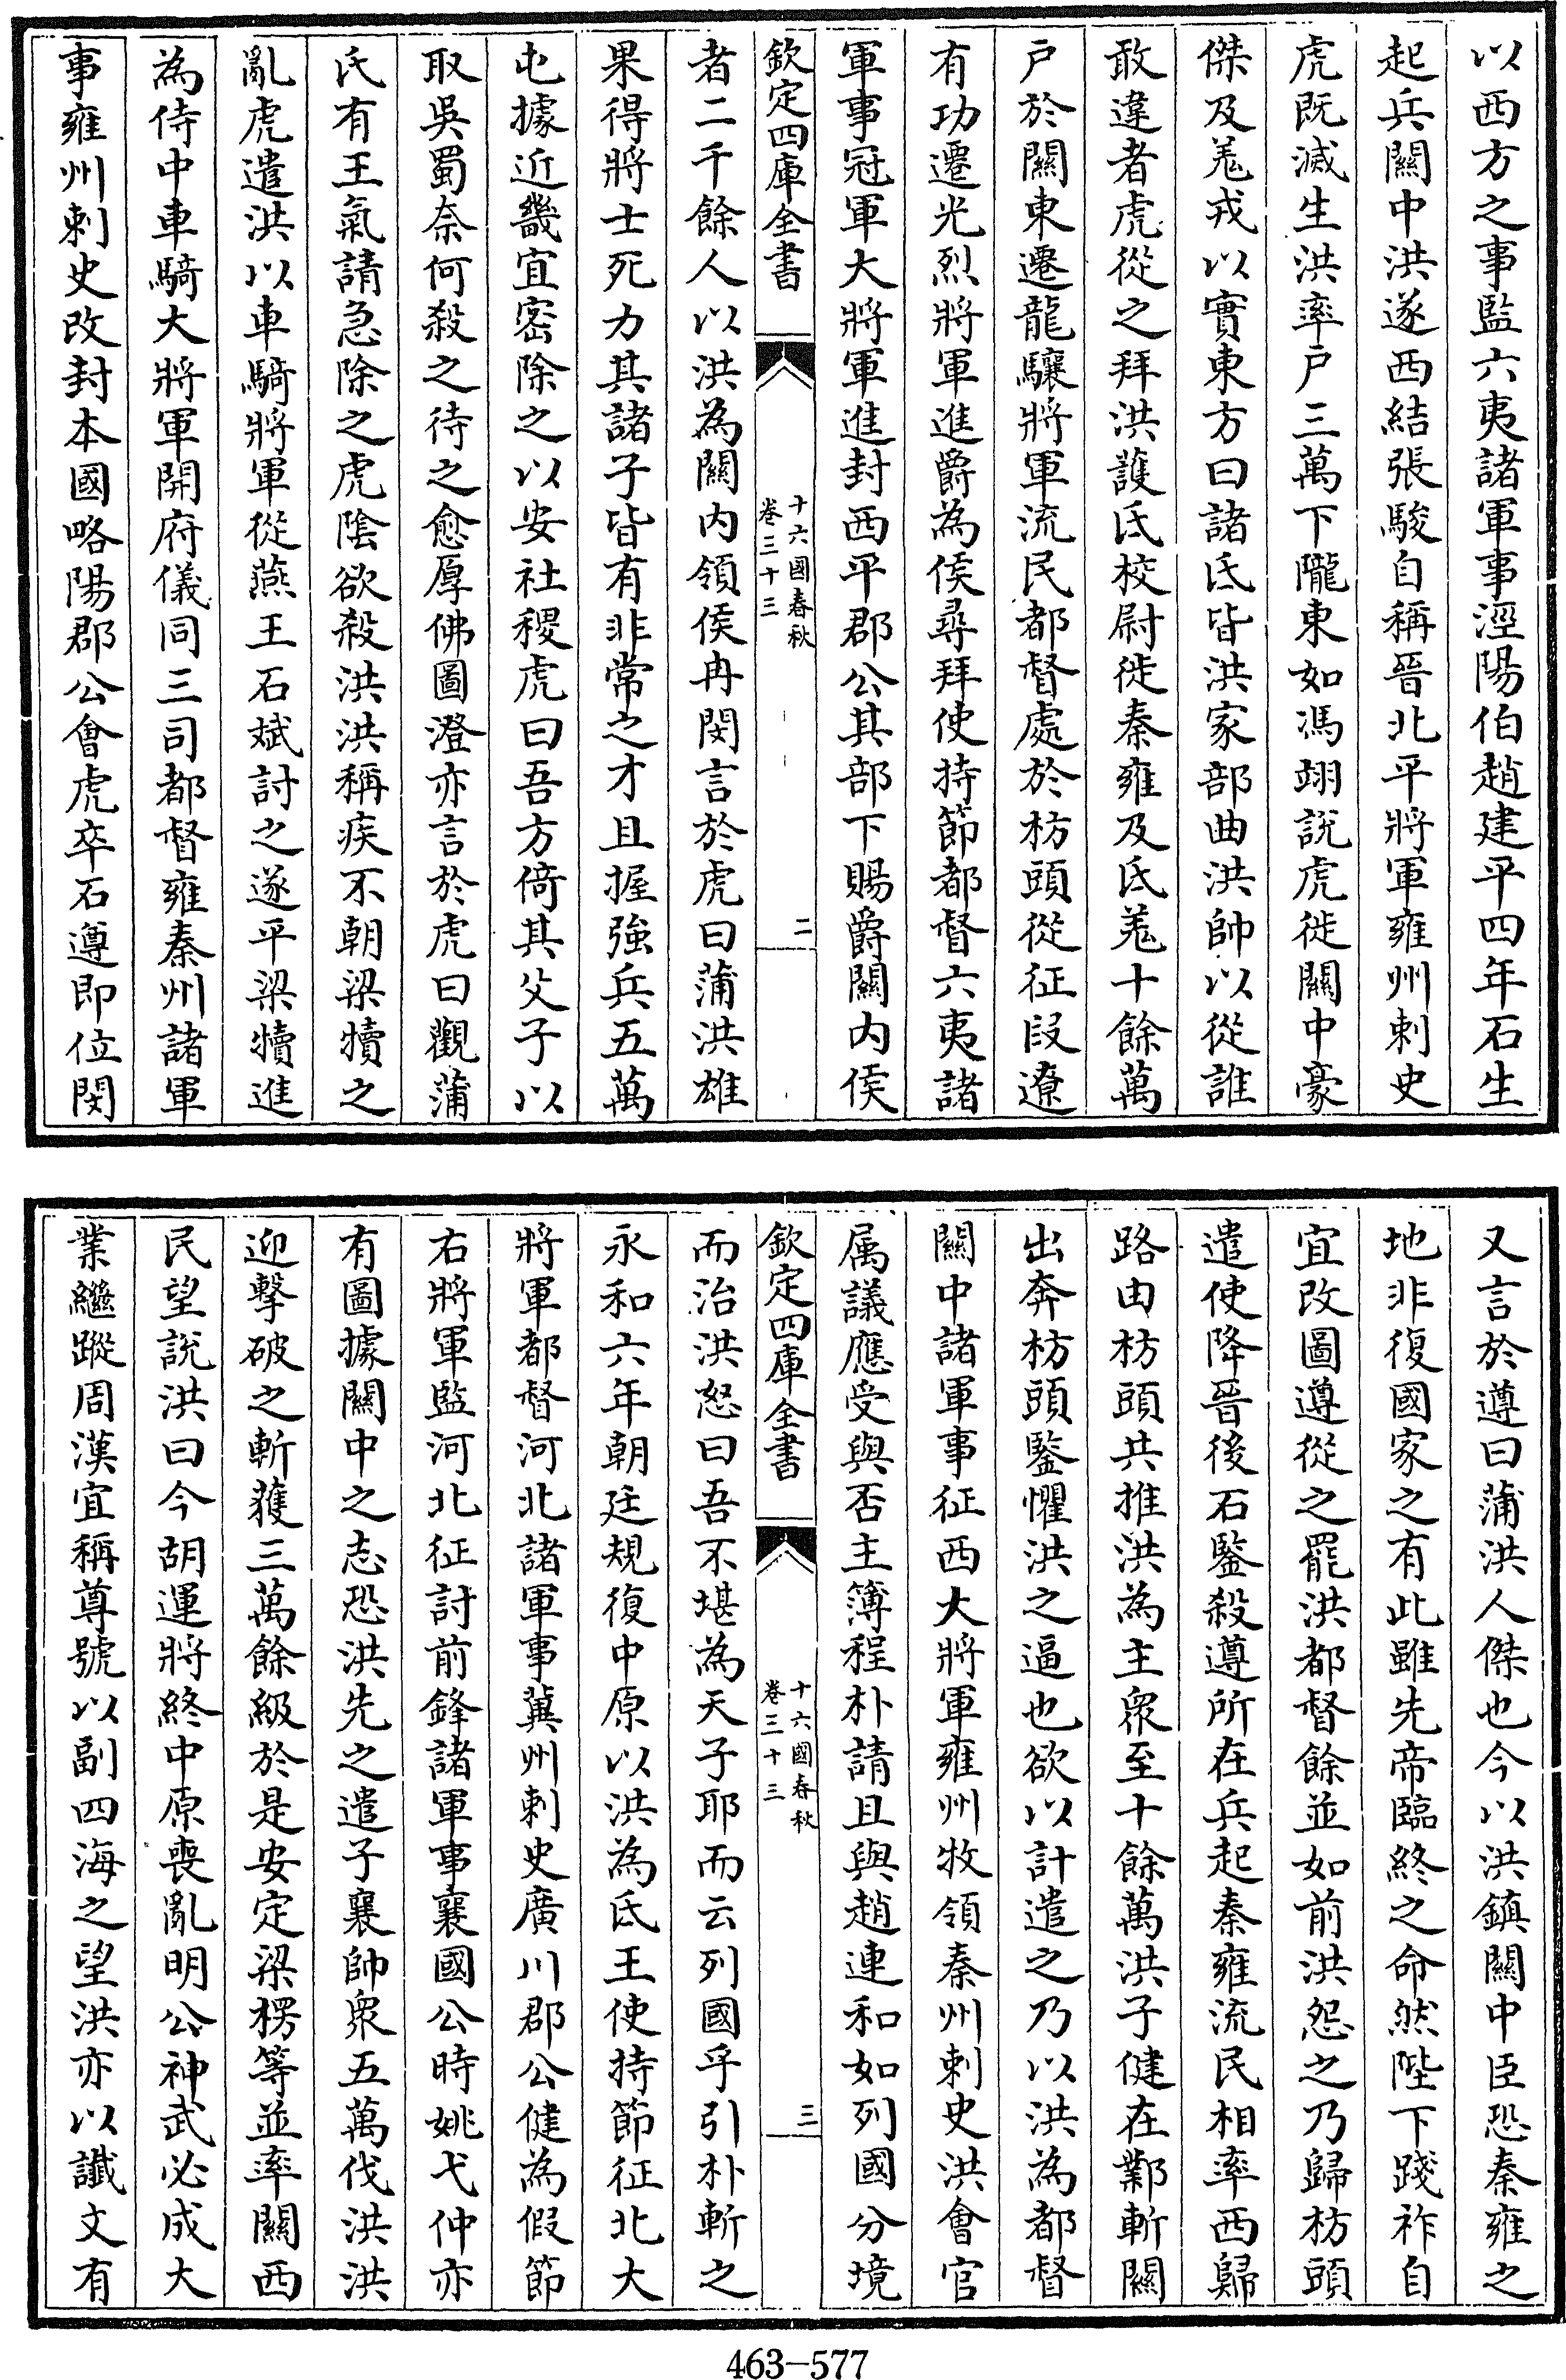 以西方之事監六夷諸軍事涇陽伯趙建平四年石生
起兵關中洪遂西結張駿自稱晉北平將軍雍州刺史
虎既滅生洪率戶三萬下隴東如馮翊說虎徙關中豪
傑及羗戎以實東方曰諸氐皆洪家部曲洪帥以從誰
敢違者虎從之拜洪護氐校尉徙秦雍及氐羗十餘萬
戶於關東遷龍驤將軍流民都督處於枋頭從征段遼
有功遷光烈將軍進爵為侯尋拜使持節都督六夷諸
軍事冠軍大將軍進封西平郡公其部下賜爵關內侯
欽定四庫全書
十六國春秋
卷三十三
二
者二千餘人以洪為關內領侯冉閔言於虎曰蒲洪雄
果得將士死力其諸子皆有非常之才且握強兵五萬
屯據近畿宜密除之以安社稷虎曰吾方倚其父子以
取吳蜀奈何殺之待之愈厚佛圖澄亦言於虎曰觀蒲
氏有王氣請急除之虎陰欲殺洪洪稱疾不朝梁犢之
亂虎遣洪以車騎將軍從燕王石斌討之遂平梁犢進
為侍中車騎大將軍開府儀同三司都督雍秦州諸軍
事雍州刺史改封本國略陽郡公會虎卒石遵即位閔
又言於遵曰蒲洪人傑也今以洪鎮關中臣恐秦雍之
地非復國家之有此雖先帝臨終之命然陛下踐祚自
宜改圖遵從之罷洪都督餘並如前洪怨之乃歸枋頭
遣使降晉後石鑒殺遵所在兵起秦雍流民相率西歸
路由枋頭共推洪為主衆至十餘萬洪子健在鄴斬關
出奔枋頭鑒懼洪之逼也欲以計遣之乃以洪為都督
關中諸軍事征西大將軍雍州牧領秦州刺史洪會官
属議應受與否主簿程朴請且與趙連和如列國分境
欽定四庫全書
十六國春秋
卷三十三
三
而治洪怒曰吾不堪為天子耶而云列國乎引朴斬之
永和六年朝廷規復中原以洪為氐王使持節征北大
將軍都督河北諸軍事冀州刺史廣川郡公健為假節
右將軍監河北征討前鋒諸軍事襄國公時姚弋仲亦
有圖據關中之志恐洪先之遣子襄帥衆五萬伐洪洪
迎擊破之斬獲三萬餘級於是安定梁楞等並率關西
民望說洪曰今胡運將終中原喪亂明公神武必成大
業繼蹤周漢宜稱尊號以副四海之望洪亦以讖文有
463-577